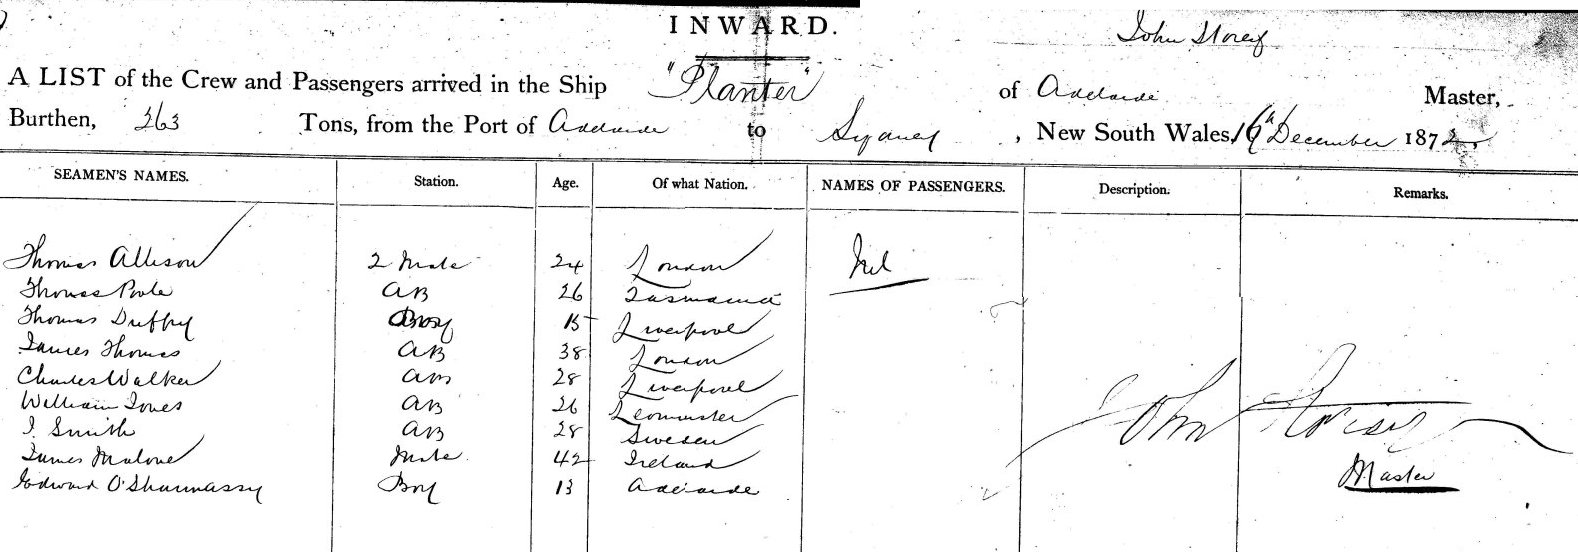 INWARD.
John Storey
A LIST of the Crew and Passengers arrived in the Ship "Planter" of Adelaide Master,
Burthen, 263 Tons, from the Port of Adelaide to Sydney, New South Wales, 16th December 1872.
SEAMEN'S NAMES. Station. Age. Of what Nation. NAMES OF PASSENGERS. Description. Remarks.
Thomas Allison 2 Mate 24 London Nil
Thomas Poole AB 26 Tasmania
Thomas Duffey Boy 15 Liverpool
James Thomas AB 38 London
Charles Walker AB 28 Liverpool
William Jones AB 26 Leominster
J. Smith AB 28 Sweden
James Malone Mate 42 Ireland
Edward O'Shannassy Boy 13 Adelaide
John Storey
Master